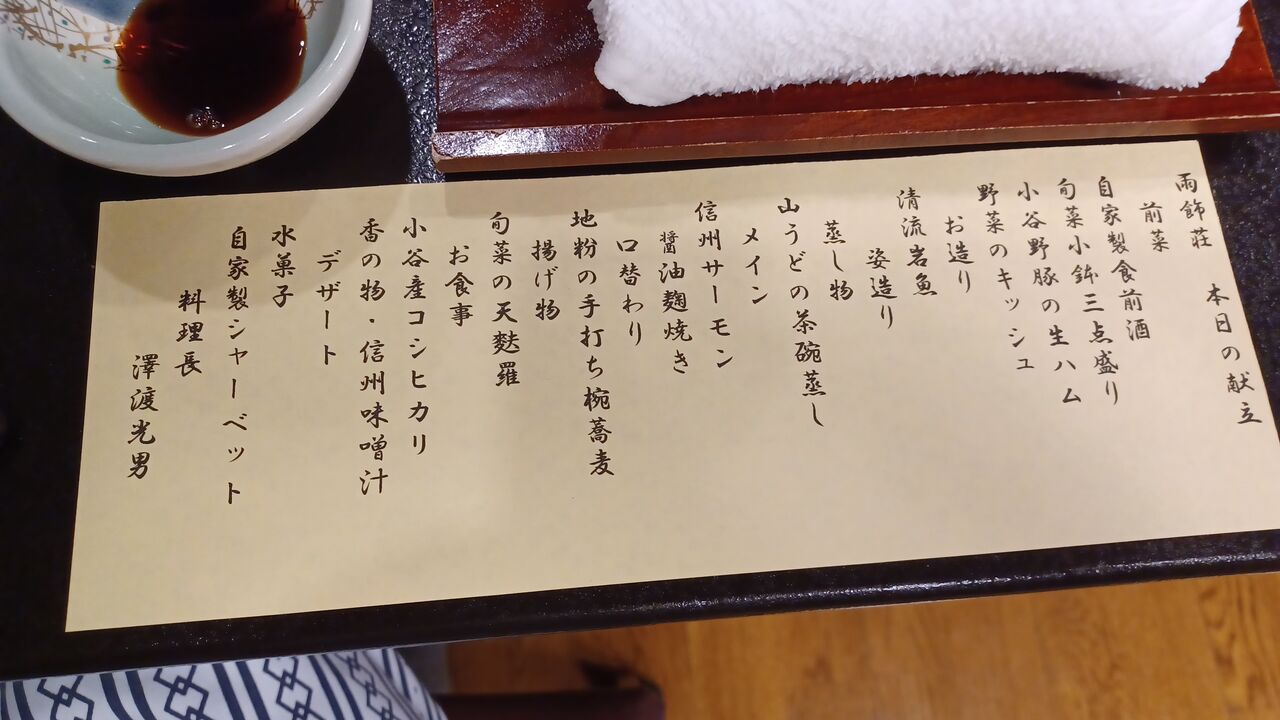 雨飾荘　本日の献立
前菜
自家製食前酒
旬菜小鉢三点盛り
小谷野豚の生ハム
野菜のキッシュ
お造り
清流岩魚
姿造り
蒸し物
山うどの茶碗蒸し
メイン
信州サーモン
醤油麹焼き
口替わり
地粉の手打ち椀蕎麦
揚げ物
旬菜の天麩羅
お食事
小谷産コシヒカリ
香の物・信州味噌汁
デザート
水菓子
自家製シャーベット
料理長
澤渡光男